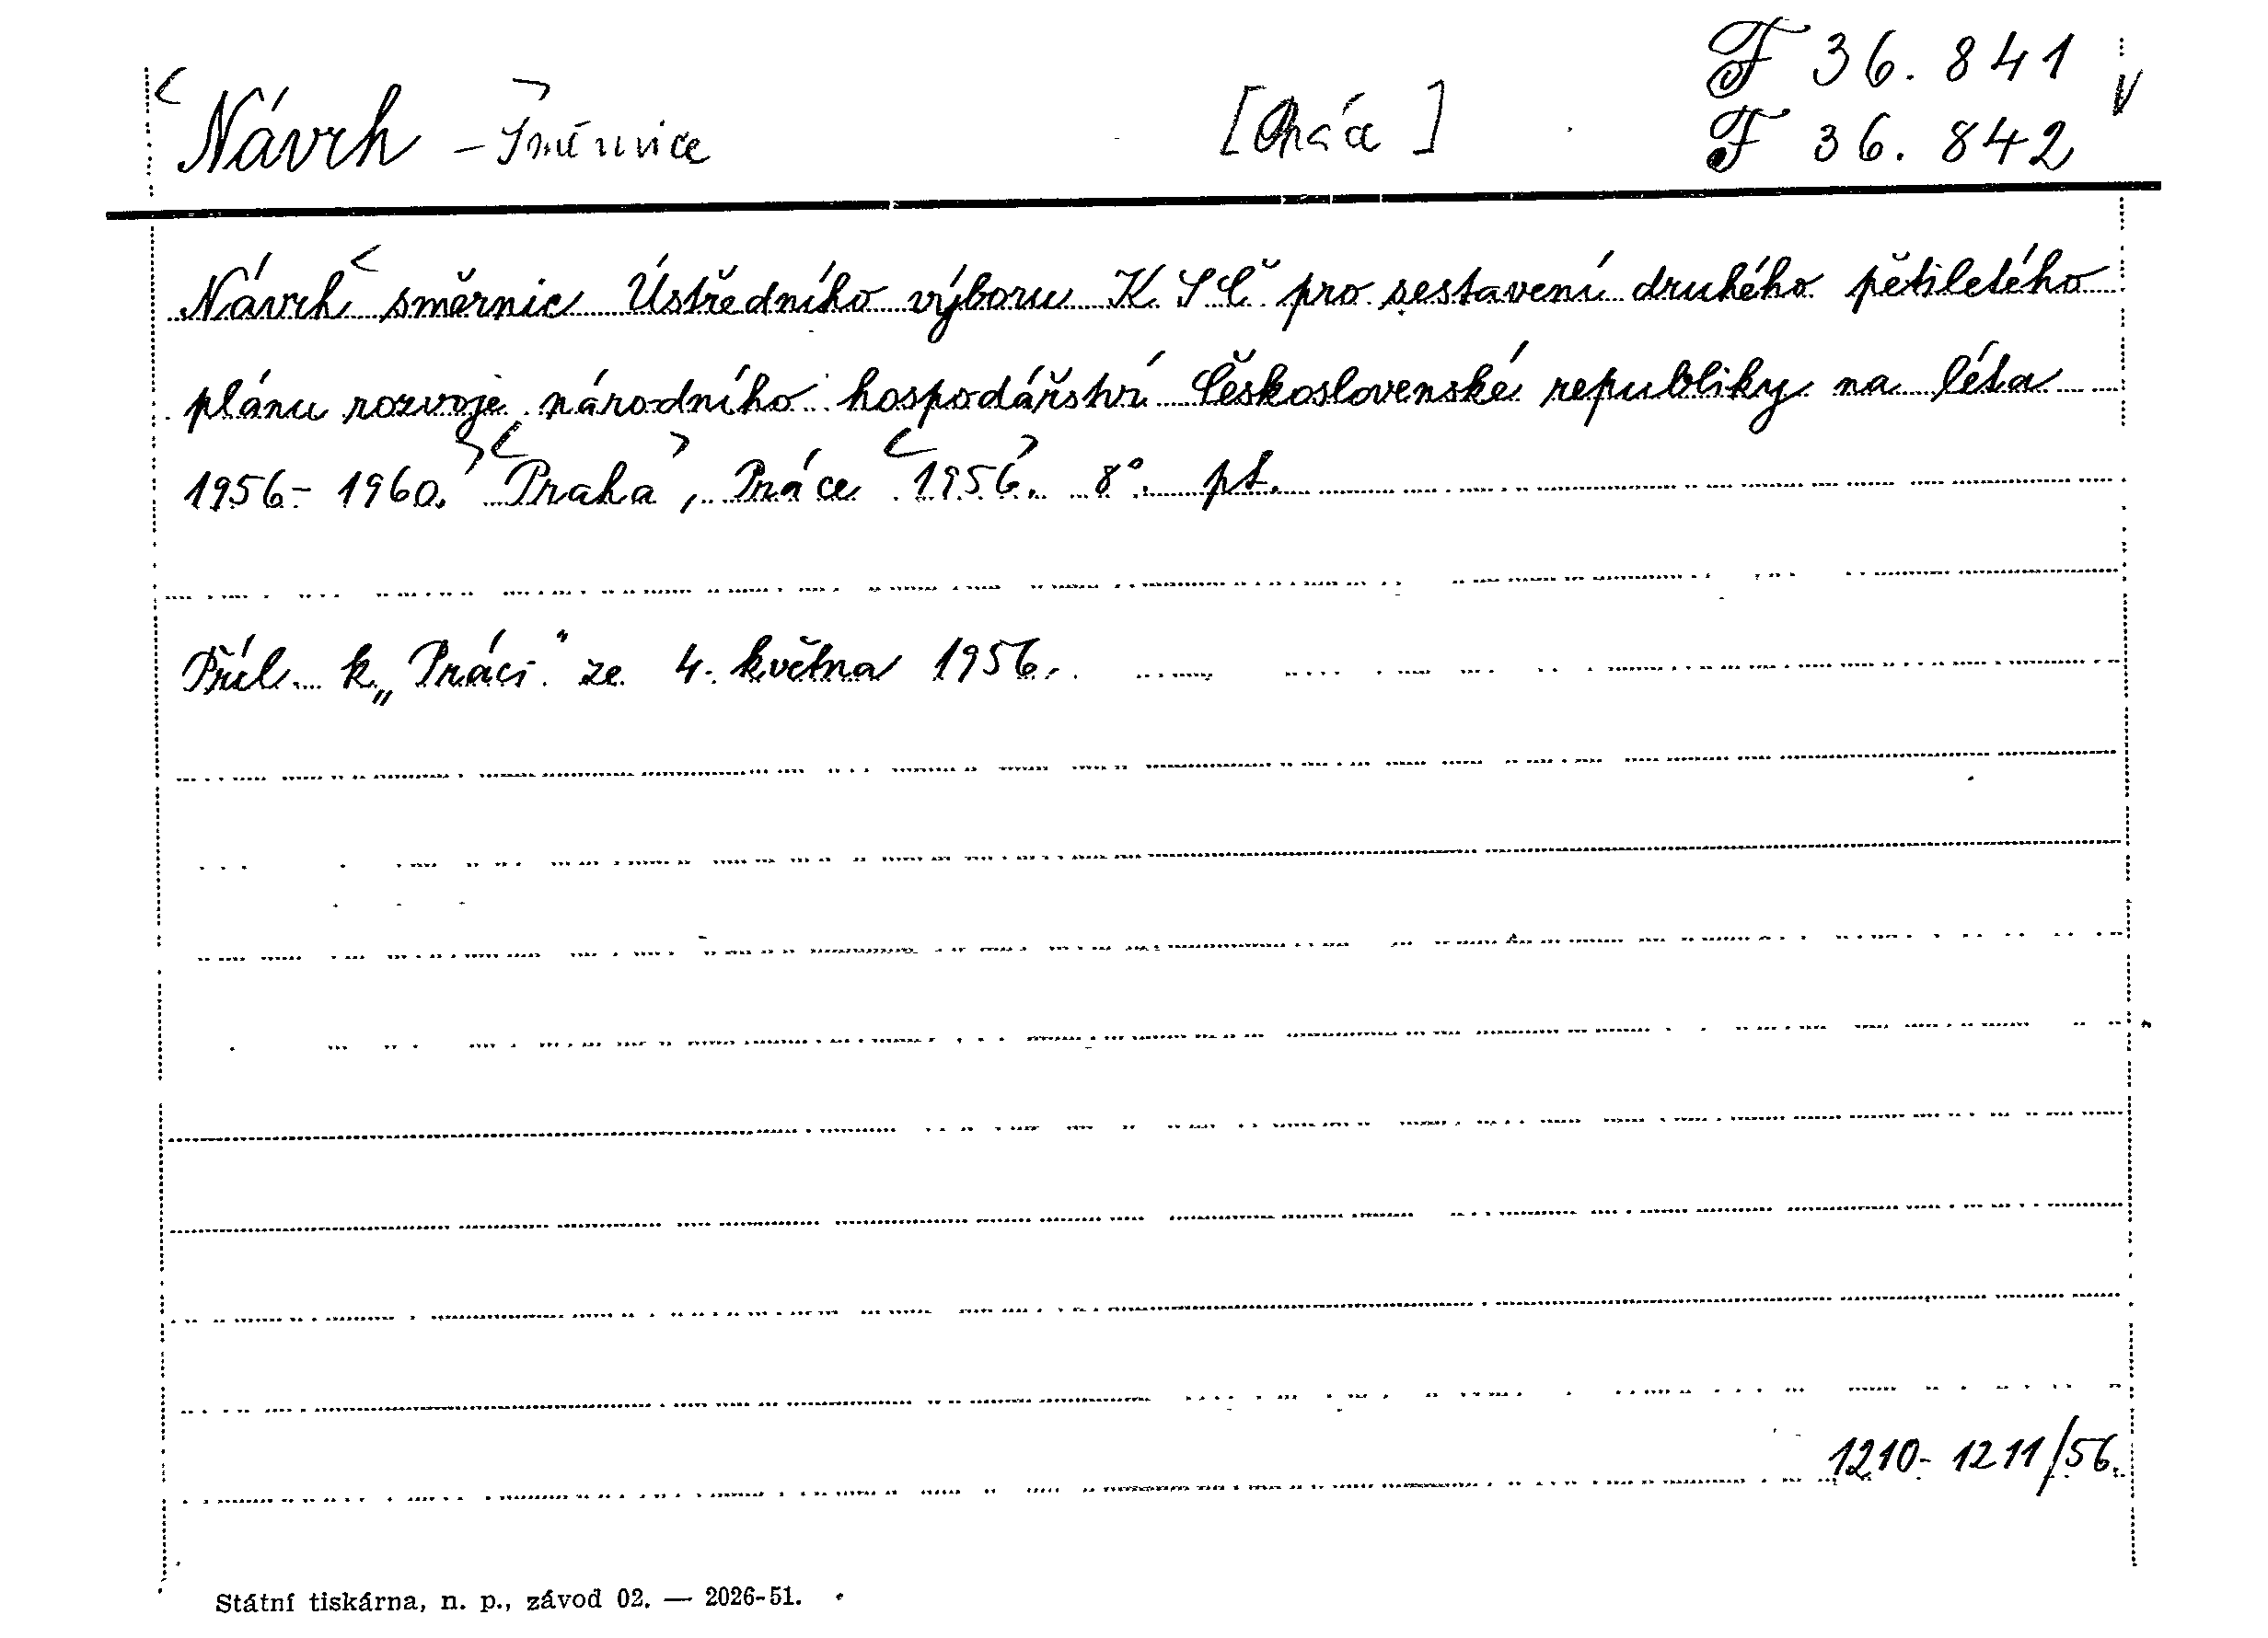 Návrh - Směrnice [Práce] F 36.841
F 36.842
Návrh směrnic Ústředního výboru KSČ pro sestavení druhého pětiletého
plánu rozvoje národního hospodářství Československé republiky na léta
1956-1960. Praha, Práce 1956. 8°. pt.
Příl. k „Práci" ze 4. května 1956.
1210-1211/56.
Státní tiskárna, n. p., závod 02. — 2026-51.